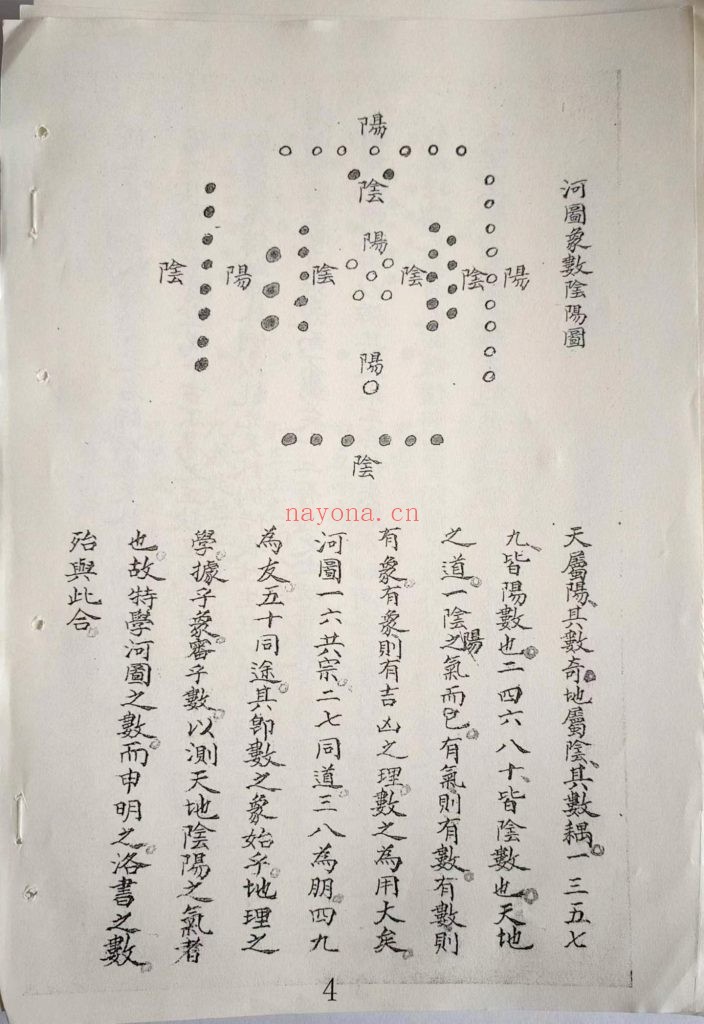 河圖象數陰陽圖
陽
陰
陽
陰
陽
陰
陰
陰
陽
陽
陰
天屬陽、其數奇。地屬陰、其數耦。一三五七
九、皆陽數也。二四六八十、皆陰數也。天地
之道。一陰陽之氣而已。有氣則有數。有數則
有象。有象則有吉凶之理。數之為用大矣。
河圖一六共宗。二七同道。三八為朋。四九
為友。五十同途。其即數之象始乎。地理之
學。據乎象。審乎數。以測天地陰陽之氣者
也。故特學河圖之數。而申明之。洛書之數。
殆與此合。
nayona.cn
4